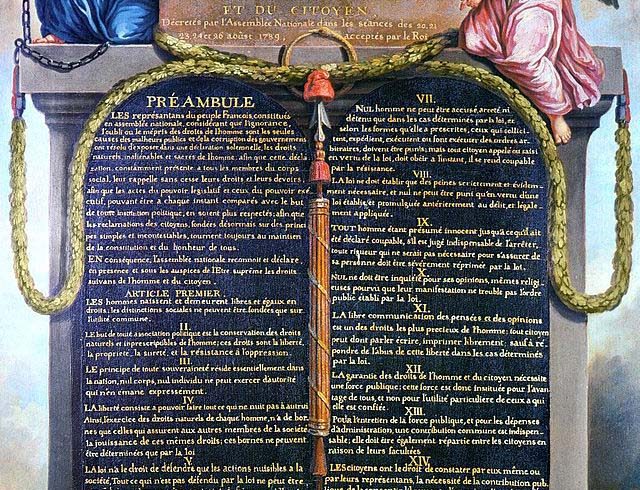 ET DU CITOYEN
Décretés par l'Assemblée Nationale dans les séances des 20, 21
23, 24 et 26 août 1789, acceptés par le Roi
PRÉAMBULE
LES représentans du peuple François, constitués
en assemblée nationale, considérant que l'ignorance,
l'oubli ou le mépris des droits de l'homme sont les seules
causes des malheurs publics et de la corruption des gouvernemens
ont résolu d'exposer dans une déclaration solemnelle, les droits
naturels, inaliénables et sacrés de l'homme; afin que cette décla
ration, constamment présente a tous les membres du corps
social, leur rappelle sans cesse leurs droits et leurs devoirs;
afin que les actes du pouvoir législatif et ceux du pouvoir exé
cutif, pouvant être à chaque instant comparés avec le but
de toute institution politique, en soient plus respectés; afin que
les réclamations des citoyens, fondées désormais sur des princi
pes simples et incontestables, tournent toujours au maintien
de la constitution et du bonheur de tous.
EN conséquence, l'assemblée nationale reconnoit et déclare,
en présence et sous les auspices de l'Etre suprême les droits
suivans de l'homme et du citoyen.
ARTICLE PREMIER.
LES hommes naissent et demeurent libres et égaux en
droits; les distinctions sociales ne peuvent être fondées que sur
l'utilité commune.
II.
LE but de toute association politique est la conservation des droits
naturels et imprescriptibles de l'homme; ces droits sont la liberté,
la propriété, la sureté, et la résistance à l'oppression.
III.
LE principe de toute souveraineté réside essentiellement dans
la nation, nul corps, nul individu ne peut exercer d'autorité
qui n'en émane expressément.
IV.
LA liberté consiste à pouvoir faire tout ce qui ne nuit pas à autrui
Ainsi, l'exercice des droits naturels de chaque homme, n'a de bor
nes que celles qui assurent aux autres membres de la société
la jouissance de ces mêmes droits; ces bornes ne peuvent
être déterminées que par la loi
V.
LA loi n'a le droit de défendre que les actions nuisibles à la
société. Tout ce qui n'est pas défendu par la loi ne peut être
VII.
NUL homme ne peut être accusé, arreté ni
détenu que dans les cas déterminés par la loi, et
selon les formes qu'elle a prescrites, ceux qui sollici
tent, expédient, exécutent ou font exécuter des ordres ar
bitraires, doivent être punis; mais tout citoyen appelé ou saisi
en vertu de la loi, doit obéir a l'instant, il se rend coupable
par la résistance.
VIII.
LA loi ne doit établir que des peines strictement et évidem
ment nécessaire, et nul ne peut être puni qu'en vertu d'une
loi établie et promulguée antérieurement au délit, et légale
ment appliquée.
IX.
TOUT homme étant présumé innocent jusqu'a ce qu'il ait
été déclaré coupable, s'il est jugé indispensable de l'arrêter,
toute rigueur qui ne serait pas nécessaire pour s'assurer de
sa personne doit être sévèrement réprimée par la loi.
X.
NUL ne doit être inquiété pour ses opinions, mêmes religi
euses pourvu que leur manifestation ne trouble pas l'ordre
public établi par la loi.
XI.
LA libre communication des pensées et des opinions
est un des droits les plus precieux de l'homme; tout citoyen
peut donc parler écrire, imprimer librement; sauf à ré
pondre de l'abus de cette liberté dans les cas déterminés
par la loi.
XII
LA garantie des droits de l'homme et du citoyen nécessite
une force publique; cette force est donc instituée pour l'avan
tage de tous, et non pour l'utilité particuliere de ceux a qui
elle est confiée.
XIII.
Pour l'entretien de la force publique, et pour les dépenses
d'administration, une contribution commune est indispen
sable; elle doit être également répartie entre les citoyens en
raison de leurs facultées
XIV
LES citoyens ont le droit de constater par eux même ou
par leurs représentans, la nécessité de la contribution pub